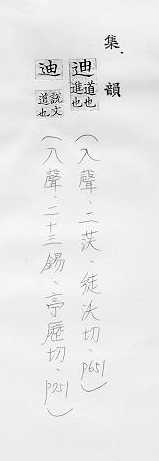 集韻
迪 道也進也 (入聲、二沃、徒沃切、P651)
迪 說文道也 (入聲、二十三錫、亭歷切、P751)